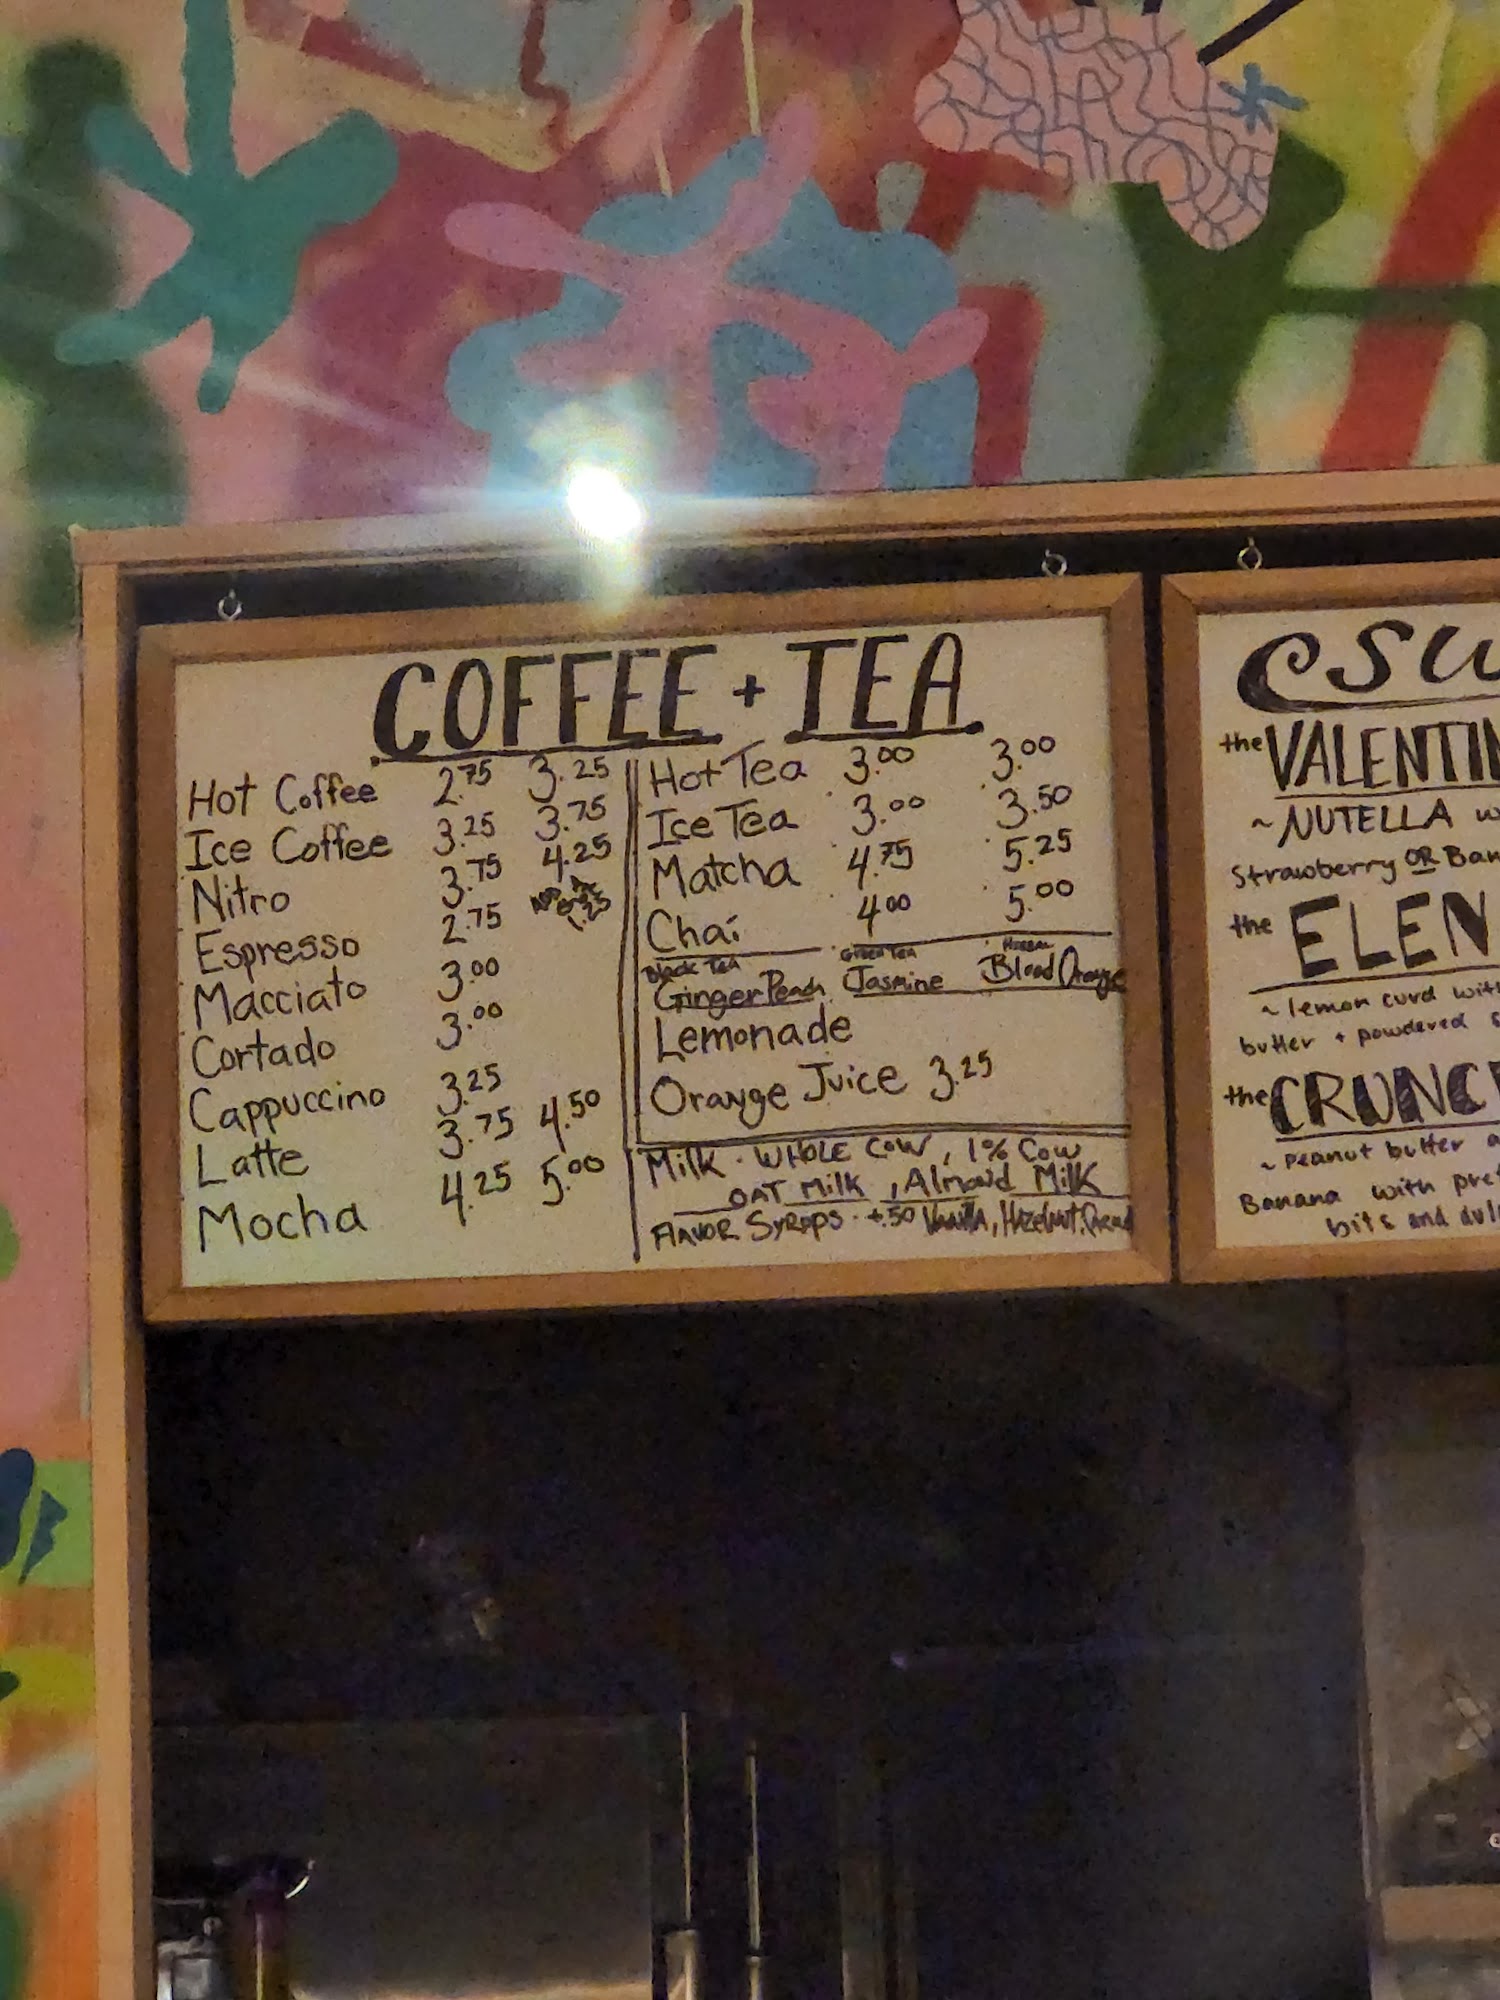 COFFEE + TEA
Hot Coffee 2.75 3.25
Ice Coffee 3.25 3.75
Nitro 3.75 4.25
Espresso 2.75
Macciato 3.00
Cortado 3.00
Cappuccino 3.25
Latte 3.75 4.50
Mocha 4.25 5.00
Hot Tea 3.00 3.00
Ice Tea 3.00 3.50
Matcha 4.75 5.25
Chai 4.00 5.00
Black Tea Green Tea Herbal
Ginger Peach Jasmine Blood Orange
Lemonade
Orange Juice 3.25
Milk - WHOLE COW, 1% Cow
OAT Milk, Almond Milk
FLAVOR SYROPS - +.50 VANILLA, HAZELNUT,
CSW
the VALENTIN
~ NUTELLA w
Strawberry OR Ban
the ELEN
~ lemon curd with
butter + powdered s
the CRUNC
~ Peanut butter a
Banana with pret
bits and dul